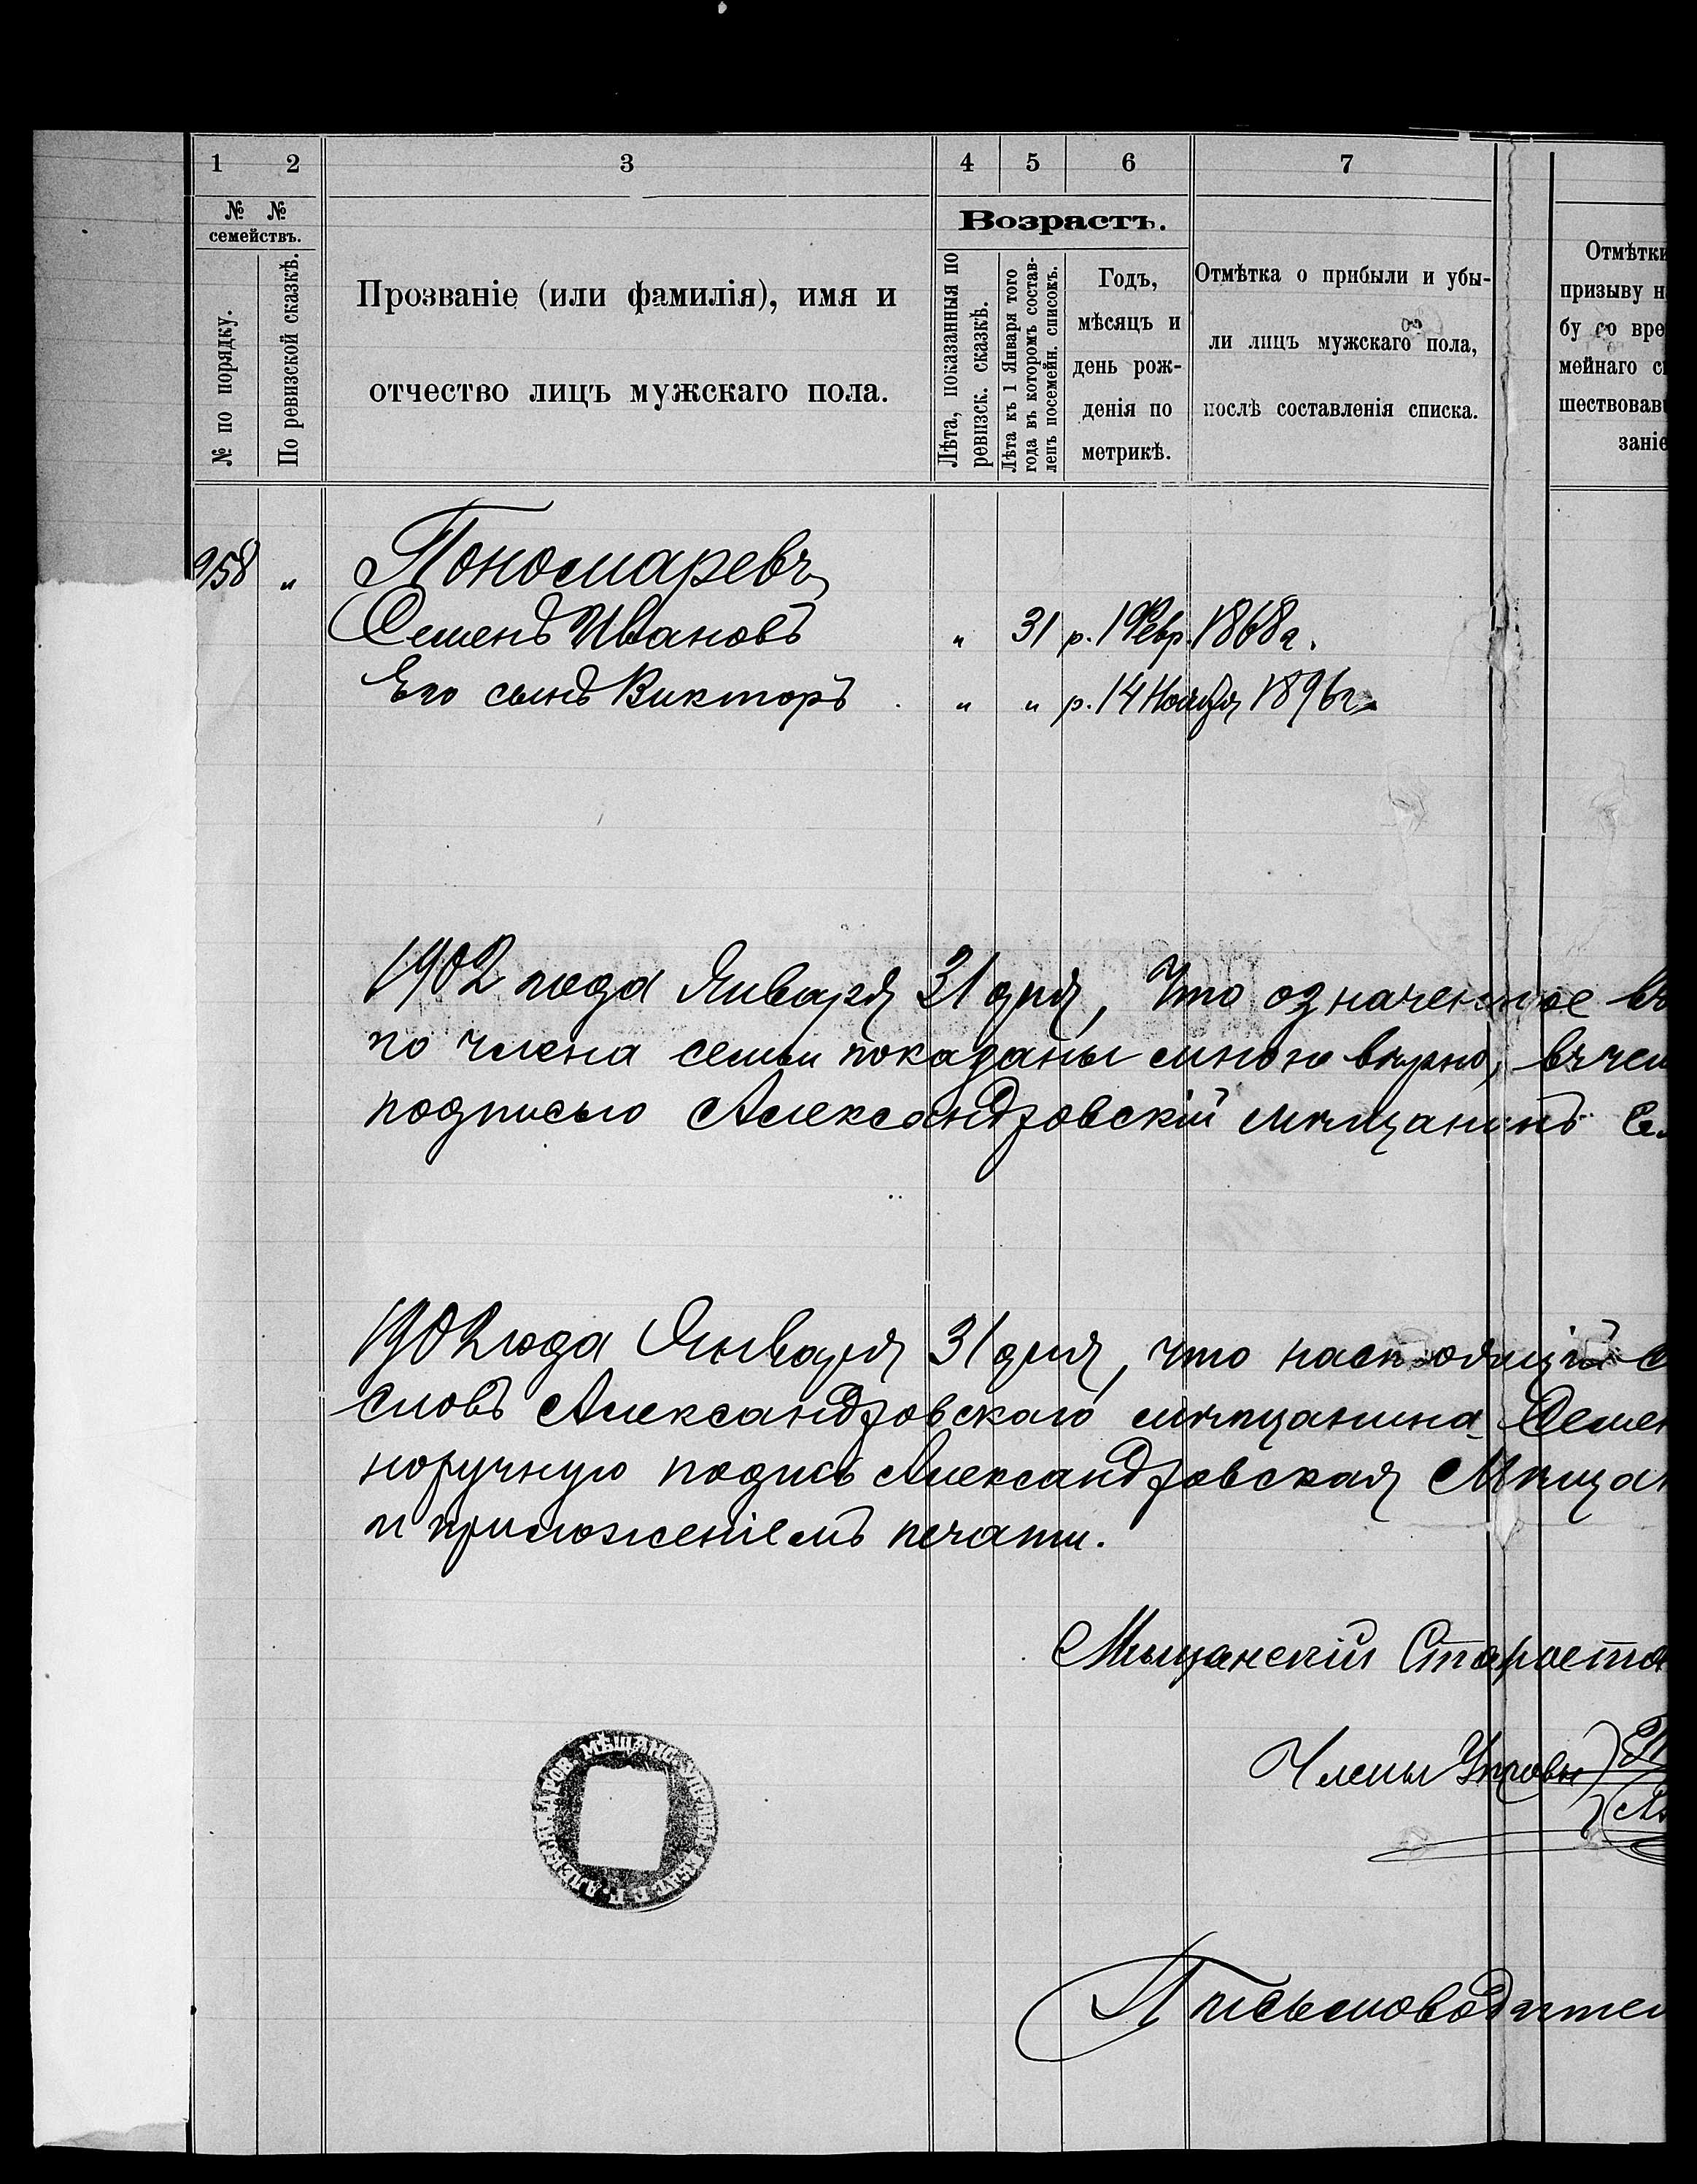 1 2 3 4 5 6 7
№ №
семействъ.
№ по порядку.
По ревизской сказкѣ.
Прозваніе (или фамилія), имя и
отчество лицъ мужскаго пола.
Возрастъ.
Лѣта, показанныя по
ревизск. сказкѣ.
Лѣта къ 1 Января того
года въ которомъ состав-
ленъ посемейн. списокъ.
Годъ,
мѣсяцъ и
день рож-
денія по
метрикѣ.
Отмѣтка о прибыли и убы-
ли лицъ мужскаго пола,
послѣ составленія списка.
Отмѣтки
призыву н
бу со вре
мейнаго с
шествовав
заніе
958 " Пономаревъ
Семенъ Ивановъ " 31 р. 1 Февр. 1868 г.
Его сынъ Викторъ " " р. 14 Ноября 1896 г.
1902 года Января 31 дня, Что означенное въ
по члена семьи показаны мною вѣрно, въ чем
подписью Александровскій мѣщанинъ Се
1902 года Января 31 дня, что настоящій с
сновъ Александровскаго мѣщанина Семен
норучную подпись Александровская Мѣщан
и приложеніемъ печати.
Мѣщанскій Староста
Члены Управы
Г. АЛЕКСАНДРОВ. МѢЩАНС. УПРАВЫ ЕКАТ. Г.
Письмоводител